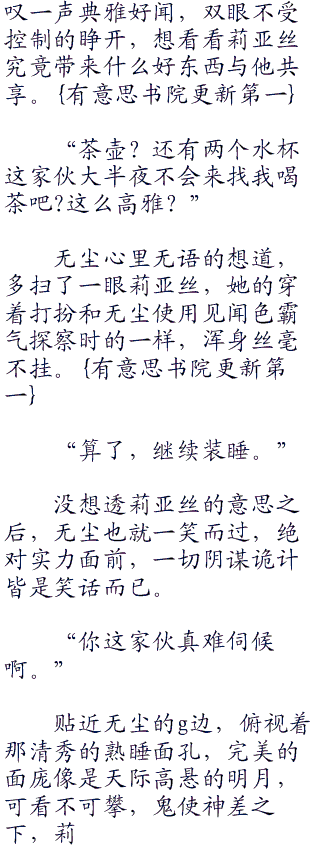 叹一声典雅好闻，双眼不受
控制的睁开，想看看莉亚丝
究竟带来什么好东西与他共
享。{有意思书院更新第一}
“茶壶？还有两个水杯
这家伙大半夜不会来找我喝
茶吧?这么高雅？”
无尘心里无语的想道，
多扫了一眼莉亚丝，她的穿
着打扮和无尘使用见闻色霸
气探察时的一样，浑身丝毫
不挂。{有意思书院更新第
一}
“算了，继续装睡。”
没想透莉亚丝的意思之
后，无尘也就一笑而过，绝
对实力面前，一切阴谋诡计
皆是笑话而已。
“你这家伙真难伺候
啊。”
贴近无尘的g边，俯视着
那清秀的熟睡面孔，完美的
面庞像是天际高悬的明月，
可看不可攀，鬼使神差之
下，莉